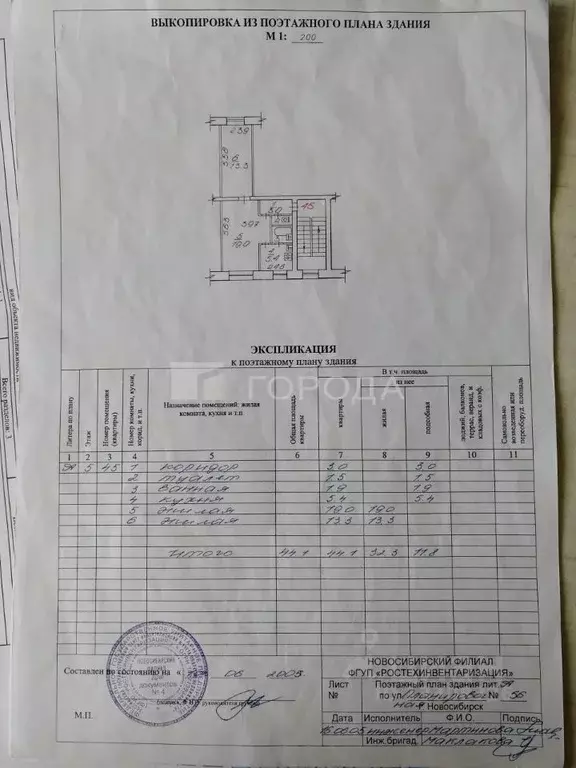 ВЫКОПИРОВКА ИЗ ПОЭТАЖНОГО ПЛАНА ЗДАНИЯ
М 1: 200
2.39
5.58
6
13.3
45
3.0
4.83
3.97
5
19.0
ЭКСПЛИКАЦИЯ
к поэтажному плану здания
ГОРОДА
Литера по плану
Этаж
Номер помещения (квартиры)
Номер комнаты, кухни, корид. и т.п.
Назначение помещений: жилая комната, кухня и т.п.
Общая площадь квартиры
В т.ч. площадь
из нее
квартиры
жилая
подсобная
лоджий, балконов, террас, веранд и кладовых с коэф.
Самовольно возведенная или переоборуд. площадь
1 2 3 4 5 6 7 8 9 10 11
5 45 1 коридор 3.0 3.0
2 туалет 1.5 1.5
3 ванная 1.9 1.9
4 кухня 5.4 5.4
5 жилая 19.0 19.0
6 жилая 13.3 13.3
итого 44.1 44.1 32.3 11.8
Составлен по состоянию на « 06 2005
М.П.
НОВОСИБИРСКИЙ ФИЛИАЛ
ФГУП «РОСТЕХИНВЕНТАРИЗАЦИЯ»
Лист Поэтажный план здания лит.
№ по ул. Планировоч № 56
ная г. Новосибирск
Дата Исполнитель Ф.И.О. Подпись
инженер Мартынова
Инж.бригад. Маплакова
Всего разделов: 3